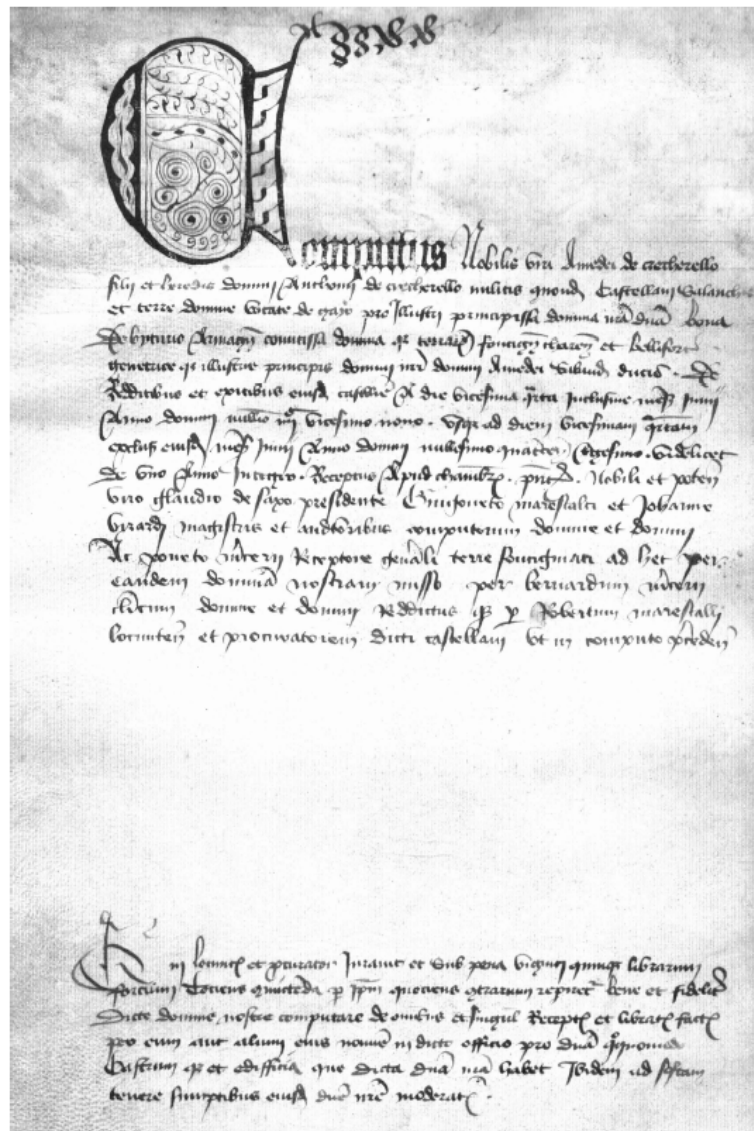 Computus Nobilis viri Amedei de crecherello
filii et heredis domini Anthonii de crecherello militis quond Castellani Salanchie
et terre domine pro Illustri principissa domina nrã duã bona
de biturio Armagn comitissa domina qz terrarũ foucign et Bellifort
genetrice qz illustris principis domini nrĩ domini Amedei Sabaud ducis . De
Redditibus et exitibus eiusd castellie A die vicesima qrta inclusive mẽs Junii
Anno domini millio iiij vicesimo nono . usqz ad diem vicesimam qrtam
exclus eiusd mẽs Junii Anno domini millesimo quatter tricesimo . videlicet
de uno Anno integro . Receptus Apud chambr . Nobili et poten
viro glaudio de saxo presidente Guigoneto marescalci et Johanne
virardi magistris et auditoribus computorum domine et domini
Ac poneto Receptore genãli terre foucigniaci ad hec per
eandem dominã nostram misso per bernardum
domine et domini Redditus qz p Robertum marescalli
locumten et procuratorem dicti castellani ut in computo preceden
Qui locumt et pcurator Juravit et sub pena viginti quinqz librarum
forcium tociens p ipm quociens repiret bene et fidelit
dicte domine nostre computare de omibs et singul Recept et librat fact
per eum aut alium eius nomine in dicto officio pro duã
Castrum qz et edifficia que dicta duã nrã habet Ibidem ad
tenere sumptibus eiusd duẽ nrẽ moderat .